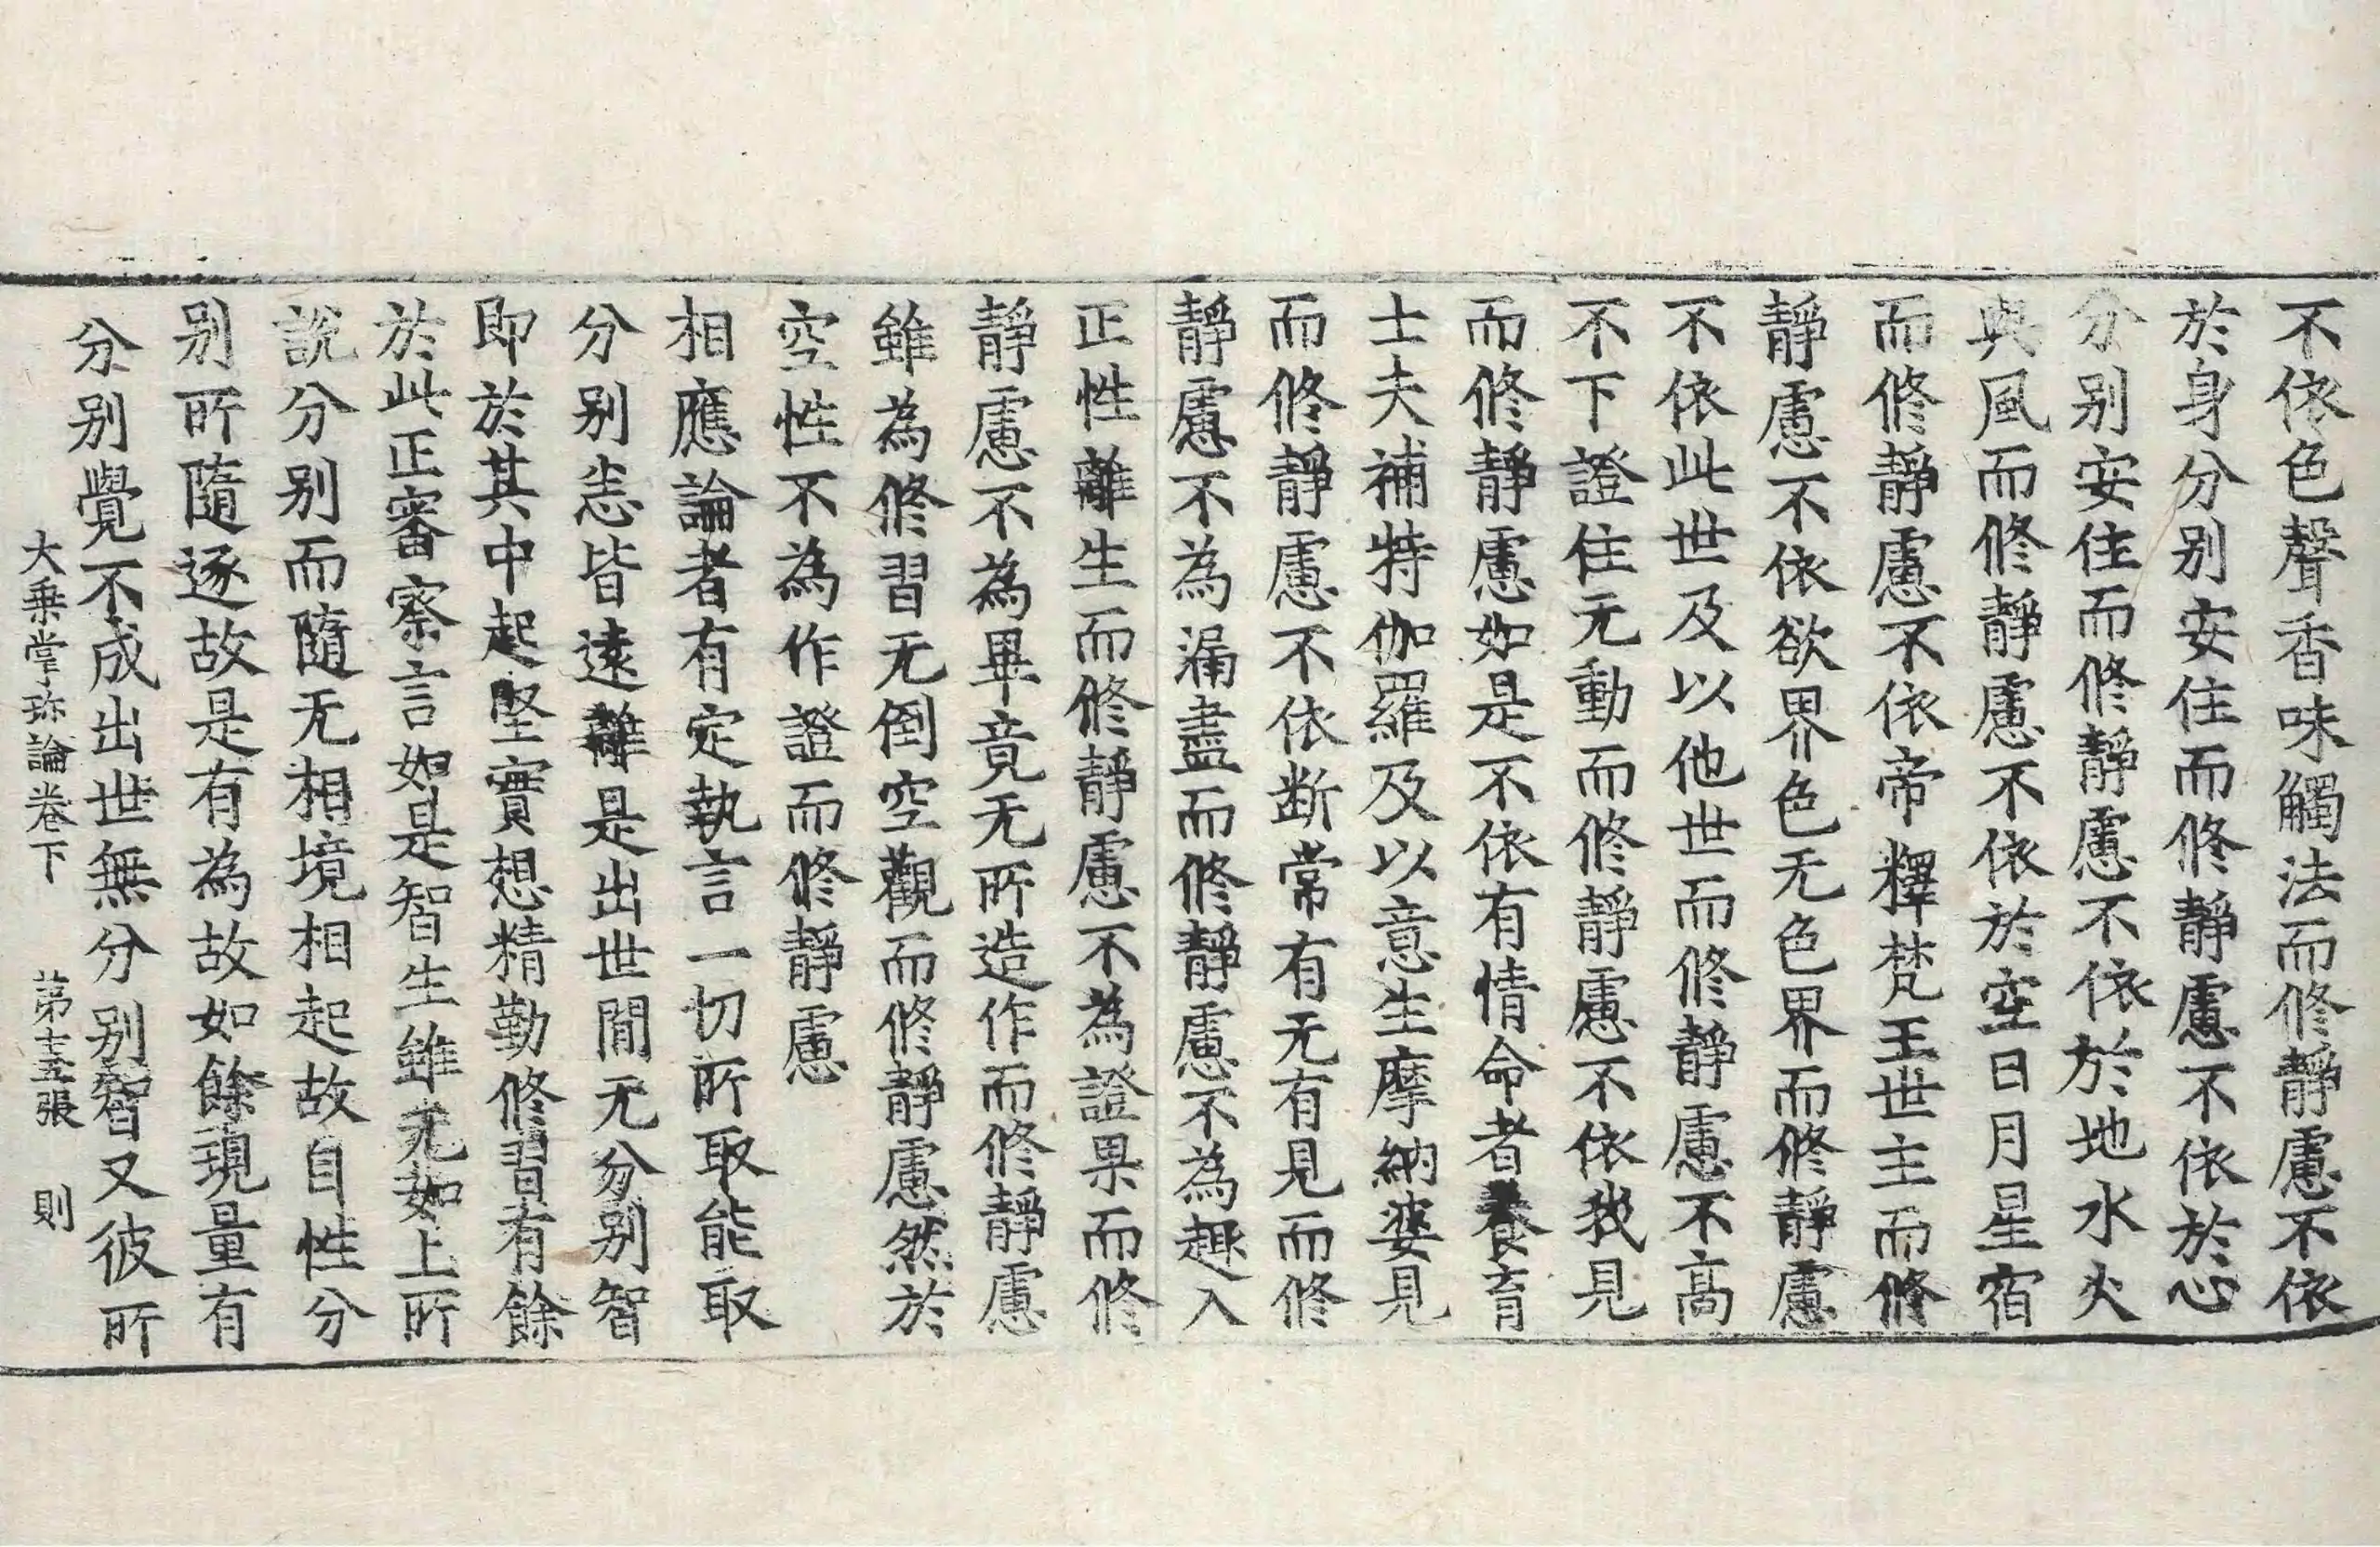 不依色聲香味觸法而修静慮不依
於身分别安住而修静慮不依於心
分别安住而修静慮不依於地水火
與風而修静慮不依於空日月星宿
而修静慮不依帝釋梵王世主而修
静慮不依欲界色无色界而修静慮
不依此世及以他世而修静慮不高
不下證住无動而修静慮不依我見
而修静慮如是不依有情命者養育
士夫補特伽羅及以意生摩納婆見
而修静慮不依断常有无有見而修
静慮不為漏盡而修静慮不為趣入
正性離生而修静慮不為證果而修
静慮不為畢竟无所造作而修静慮
雖為修習无倒空觀而修静慮然於
空性不為作證而修静慮
相應論者有定執言一切所取能取
分别恚皆遠離是出世間无分别智
即於其中起堅實想精勤修習有餘
於此正審察言如是智生雖无如上所
說分别而隨无相境相起故自性分
别所隨逐故是有為故如餘現量有
分别覺不成出世無分别智又彼所
大乗掌珎論卷下 苐十五張 則